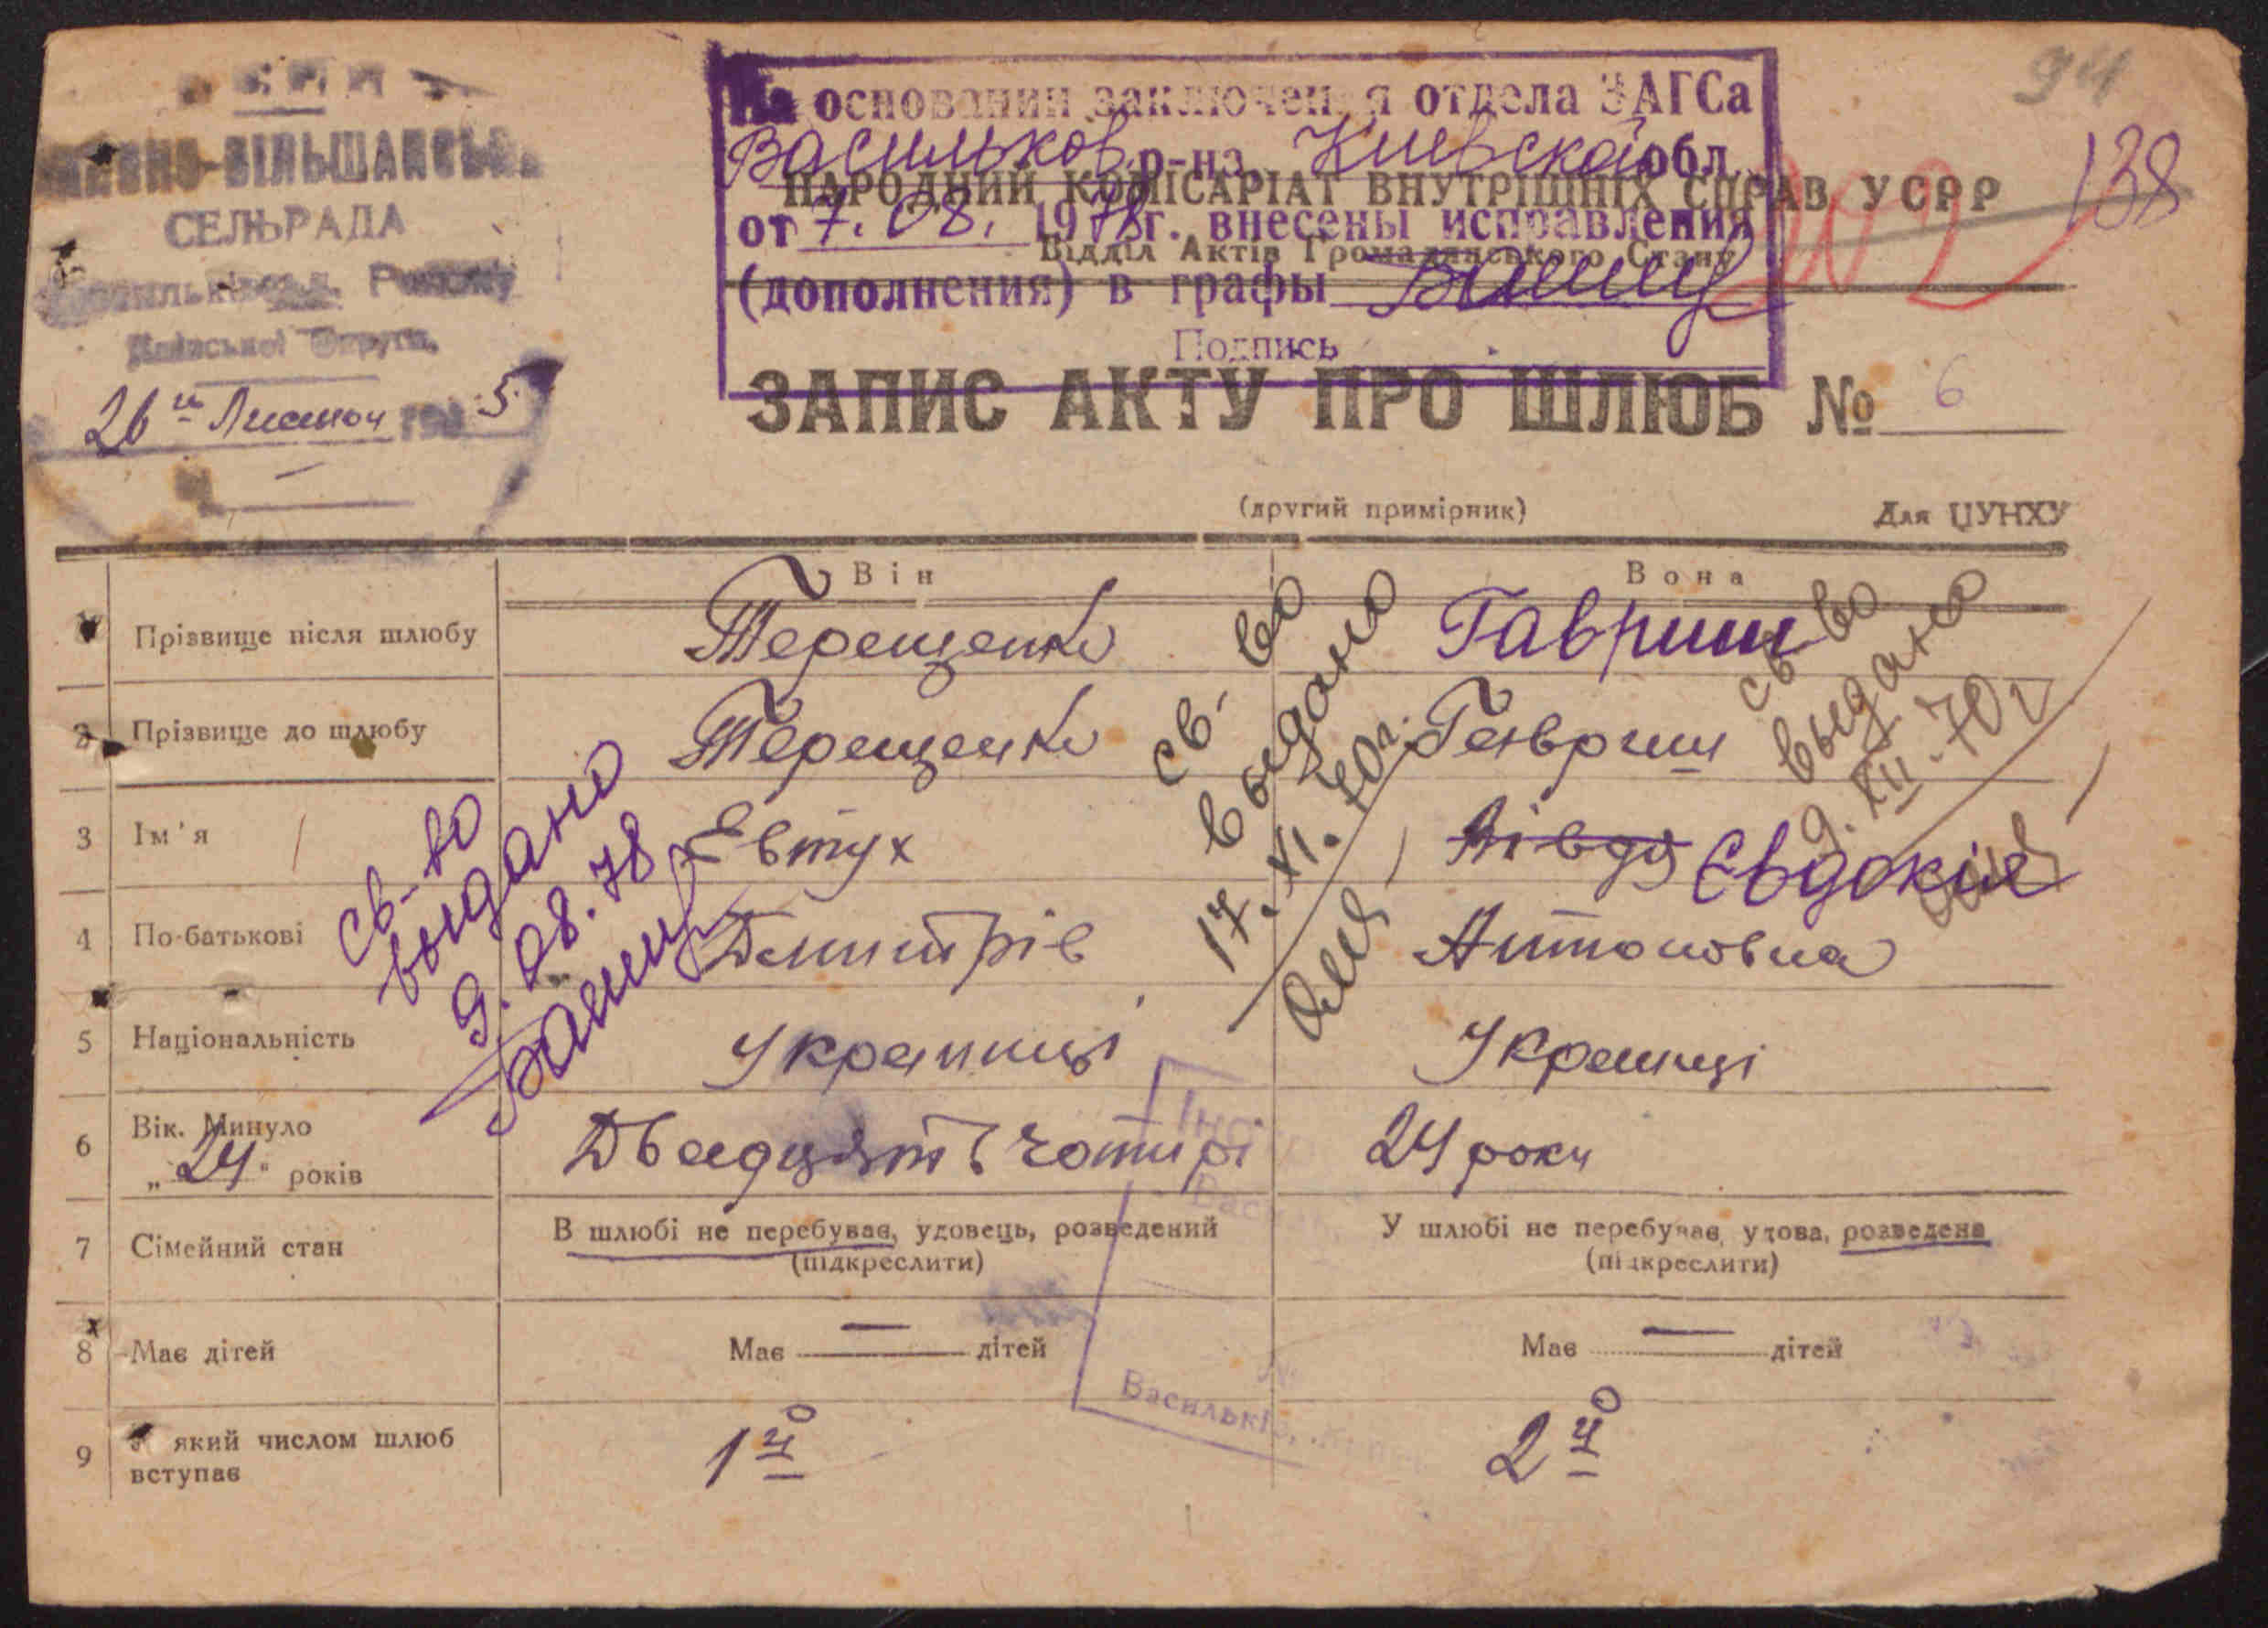 94
138
202
СЕЛЬРАДА
26 го Листоп 1935
На основании заключения отдела ЗАГСа
Васильков р-на, Киевской обл.
от 7. 08. 1978г. внесены исправления
(дополнения) в графы
Подпись
НАРОДНИЙ КОМІСАРІАТ ВНУТРІШНІХ СПРАВ УСРР
Відділ Актів Громадянського Стану
ЗАПИС АКТУ ПРО ШЛЮБ № 6
(другий примірник) Для ЦУНХУ
Він Вона
1 Прізвище після шлюбу Терещенко Гавриш
2 Прізвище до шлюбу Терещенко Гавриш
3 Ім'я Евтух Вівдя Євдокія
4 По-батькові Дмитрів Антоновна
5 Національність Українці Українці
6 Вік. Минуло „24" років Двадцять чотирі 24 роки
7 Сімейний стан В шлюбі не перебував, удовець, розведений (підкреслити) У шлюбі не перебувае, удова, розведена (підкреслити)
8 Має дітей Має — дітей Має — дітей
9 У який числом шлюб вступає 1й 2й
св-во
выдано
9.08.78
св-во
выдано
17.XI.70г.
св-во
выдано
9.XII-70г
Васильків